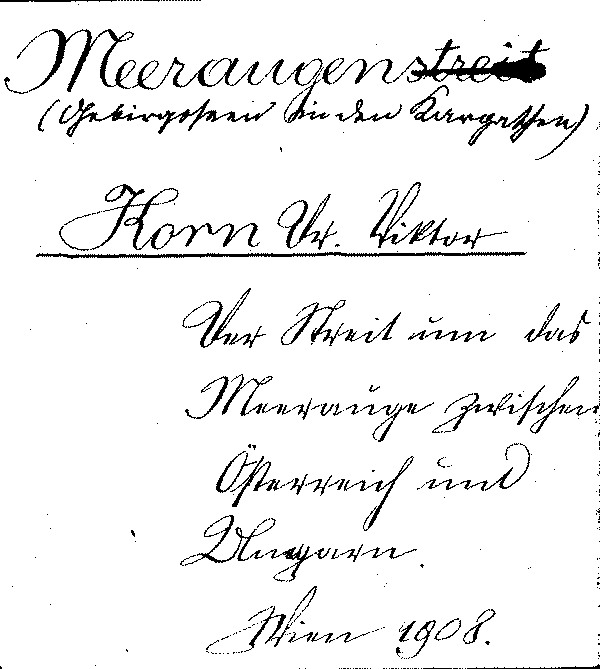 Meeraugenstreit
(Gebirgsseen in den Karpathen)
Korn Dr. Viktor
Der Streit um das
Meerauge zwischen
Österreich und
Ungarn.
Wien 1908.